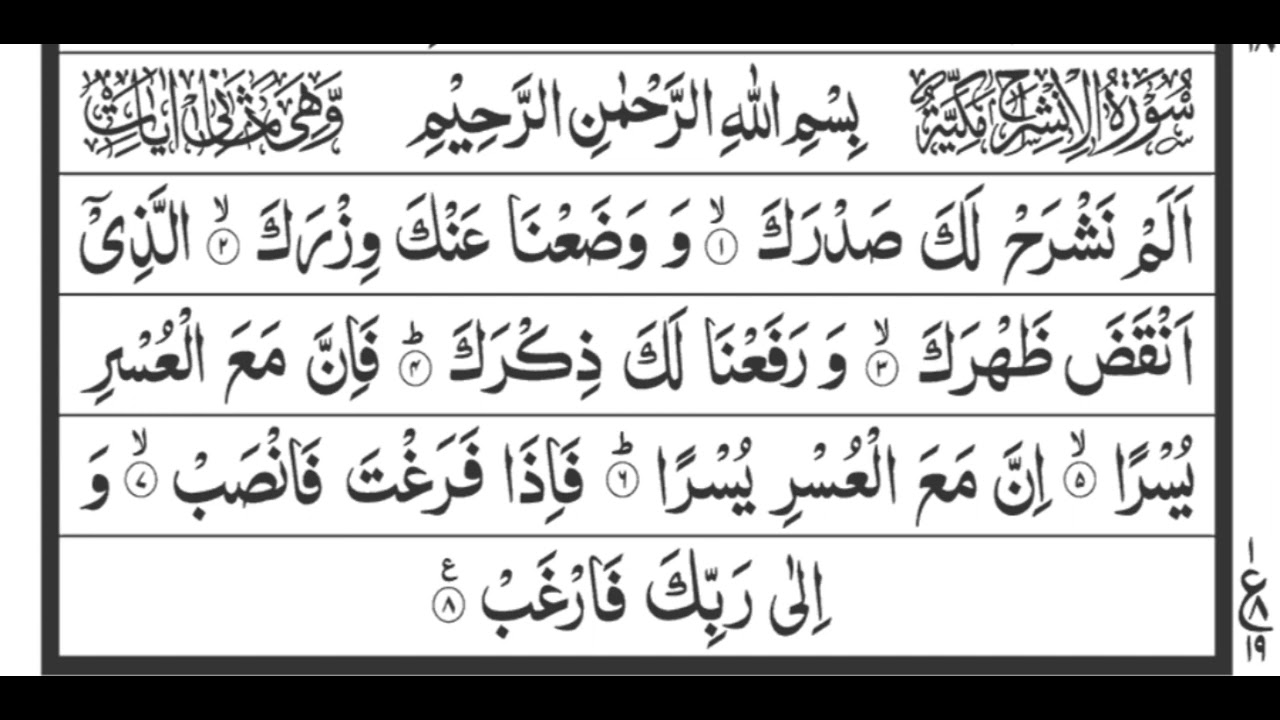 سُوْرَةُ الْاِنْشِرَاحِ مَكِّيَّةٌ بِسْمِ اللهِ الرَّحْمٰنِ الرَّحِيْمِ وَّهِىَ ثَمَانِىْ اٰيَاتٍ
اَلَمْ نَشْرَحْ لَكَ صَدْرَكَ ۙ﴿۱﴾ وَ وَضَعْنَا عَنْكَ وِزْرَكَ ۙ﴿۲﴾ الَّذِىْٓ
اَنْقَضَ ظَهْرَكَ ۙ﴿۳﴾ وَ رَفَعْنَا لَكَ ذِكْرَكَ ؕ﴿۴﴾ فَاِنَّ مَعَ الْعُسْرِ
يُسْرًا ۙ﴿۵﴾ اِنَّ مَعَ الْعُسْرِ يُسْرًا ؕ﴿۶﴾ فَاِذَا فَرَغْتَ فَانْصَبْ ۙ﴿۷﴾ وَ
اِلٰى رَبِّكَ فَارْغَبْ ﴿۸﴾ ع
۱
ع ۸
۱۹